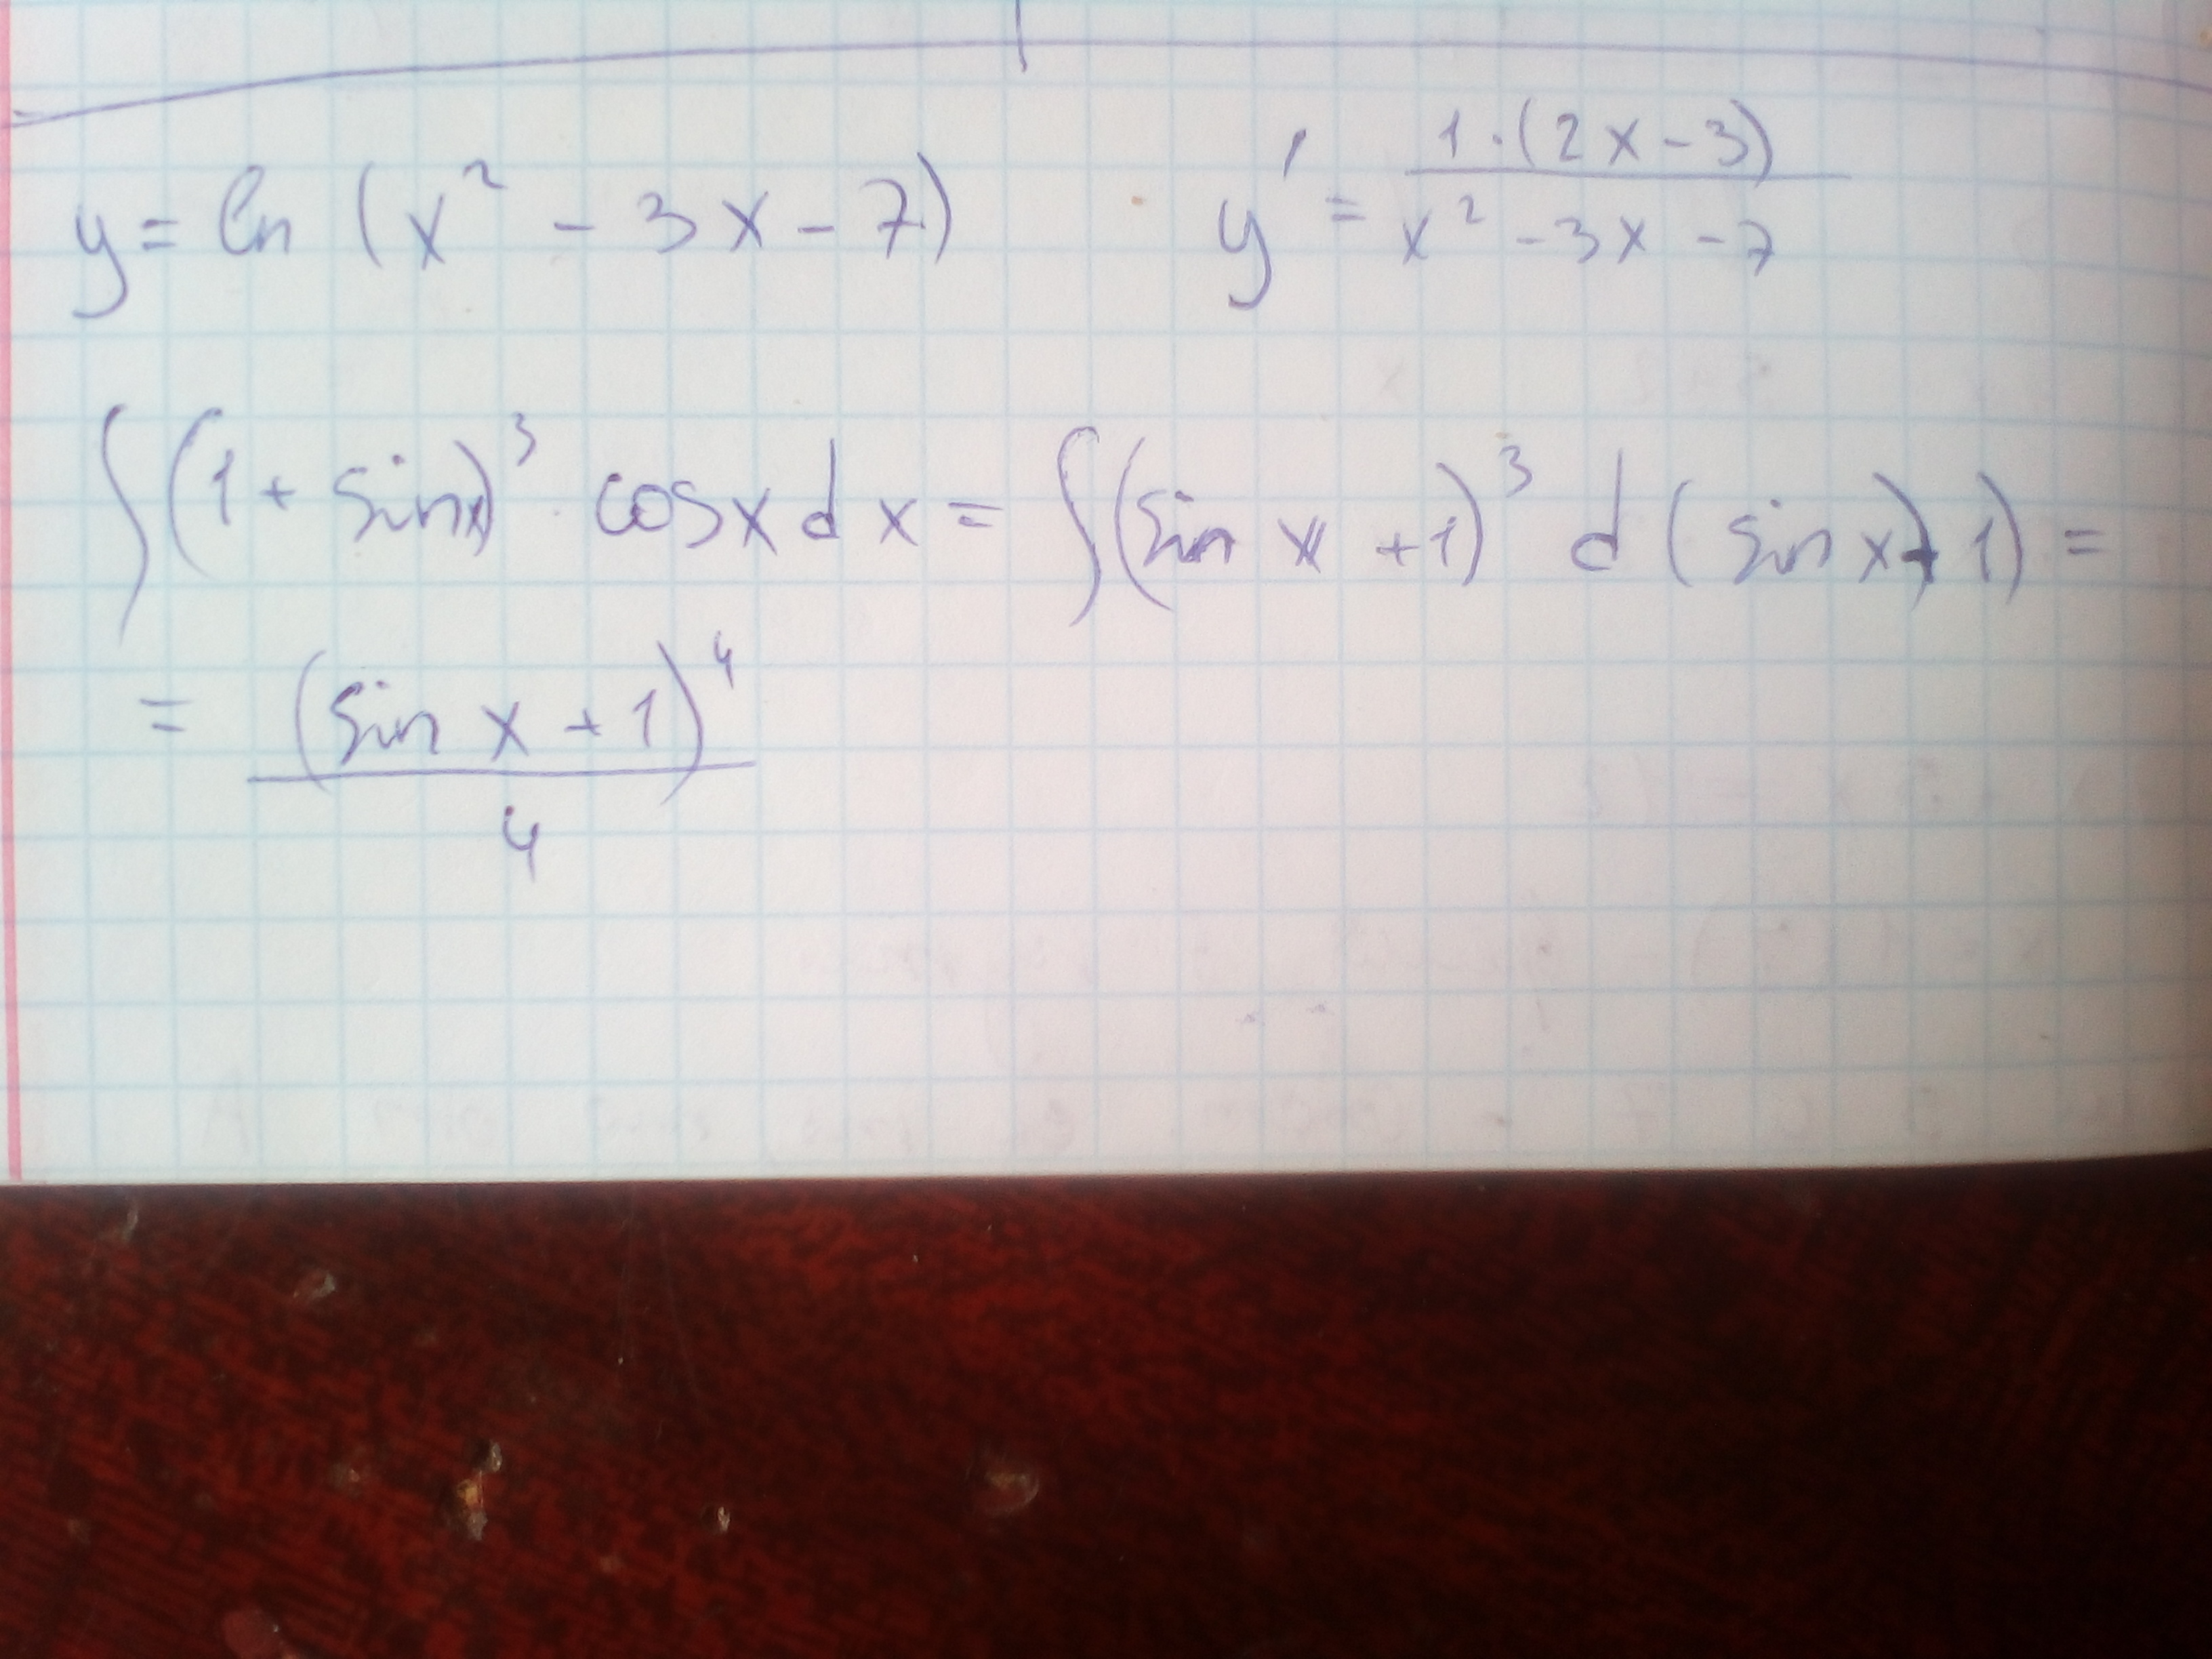 y = ln (x² - 3x - 7) y' = 1·(2x-3) / x² - 3x - 7
∫(1 + sinx)³ · cosx dx = ∫(sin x + 1)³ d (sin x + 1) =
= (sin x + 1)⁴ / 4